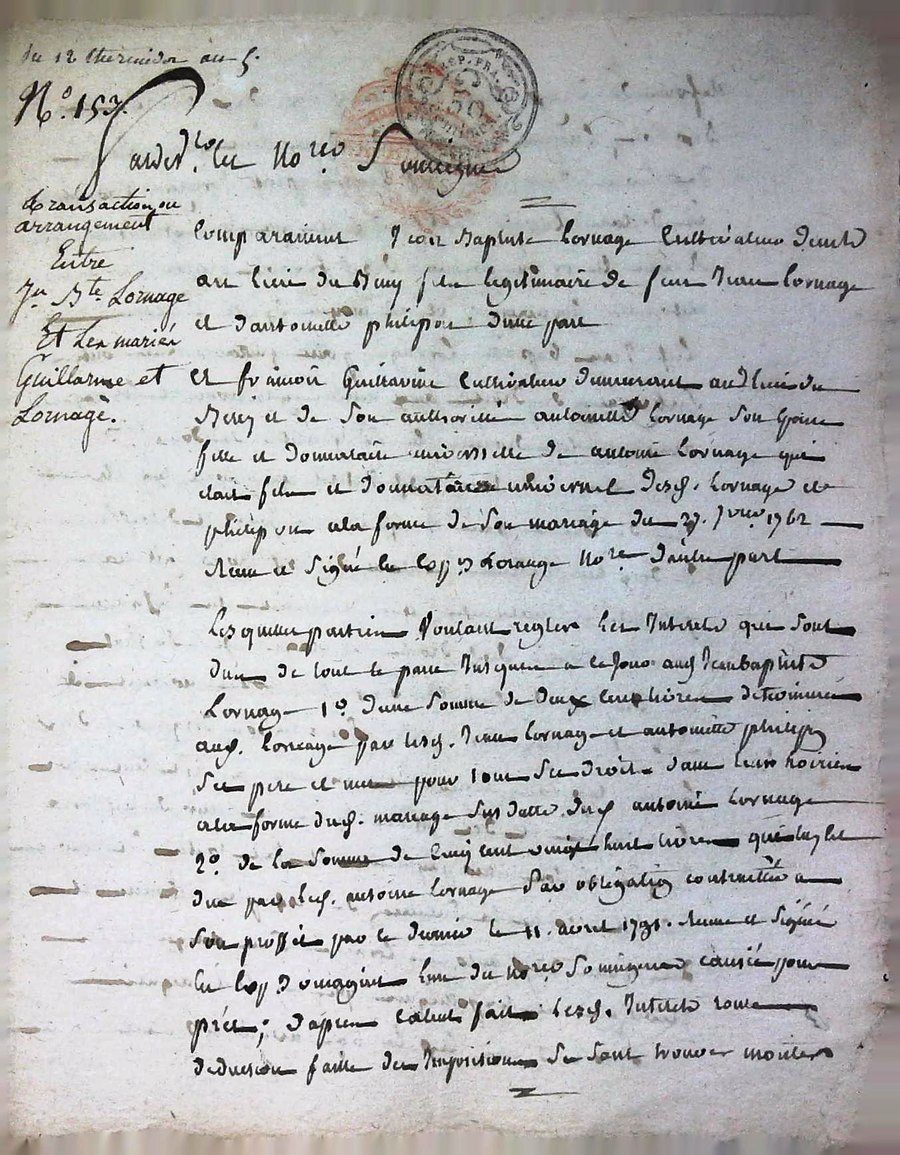 du 12 thermidor an 5.
N.º 153.
REP. FRA.
Pardev.t les No.res Soussignés
transaction ou
arrangement
Entre
Jn Bte Lornage
Et les mariés
Guillarme et
Lornage.
Comparaissent Jean Baptiste Lornage Cultivateur
au lieu du fils légitimaire de feu Jean Lornage
et d'antoinette philipon d'une part
et françois Cultivateur demeurant aud. lieu du
et de son authorité antoinette Lornage Son
fille et donnataire universelle de antoine Lornage qui
était fils et donnataire universel desd. Lornage et
philipon a la forme de son mariage du 27. 1762
Reçu et Signé No.re d'autre part
Lesquelles parties Voulant regler les Interets qui Sont
dus de tout le passé Jusques a ce Jour aud. Jean Baptiste
Lornage 1º d'une Somme de deux cens livres
aud. Lornage par lesd. Jean Lornage et antoinette philipon
Ses pere et mere pour tous Ses droits dans leurs hoiries
a la forme dud. mariage Susdatté dud. antoine Lornage
2º. de la Somme de Cinq cent vingt huit livres qui luy est
due par led. antoine Lornage par obligation contractée a
Son proffit par ce dernier le 11. avril 1791. Reçue et Signée
L'un des No.res Soussignés causée pour
prêt; d'après calcul fait lesd. Interets
deduction faite des Impositions Se sont trouvés monter